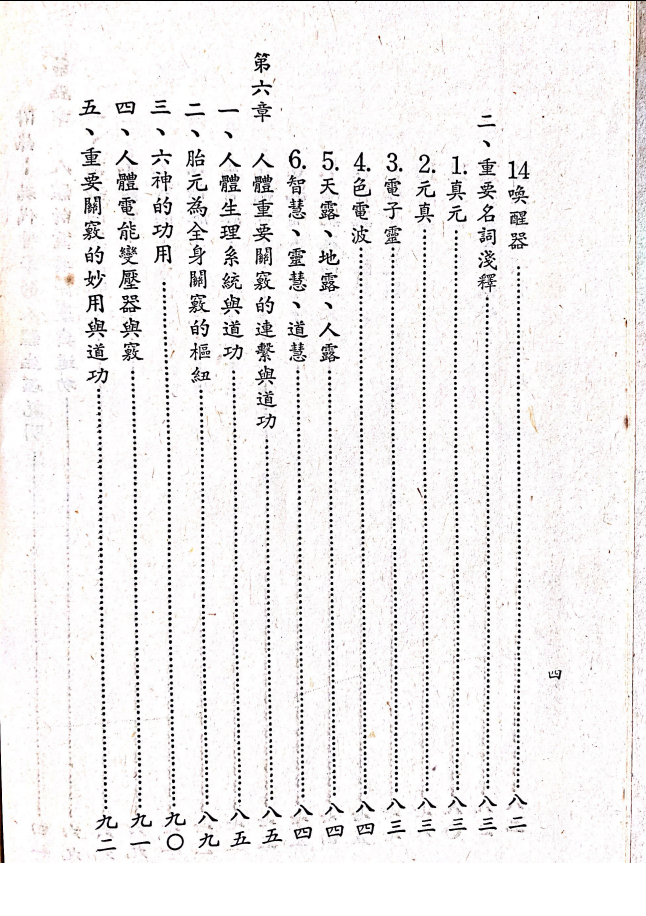 四
14喚醒器……八二
二、重要名詞淺釋……八三
1.真元……八三
2.元真……八三
3.電子靈……八三
4.色電波……八四
5.天露、地露、人露……八四
6.智慧、靈慧、道慧……八四
第六章 人體重要關竅的連繫與道功……八五
一、人體生理系統與道功……八五
二、胎元為全身關竅的樞紐……八九
三、六神的功用……九〇
四、人體電能變壓器與竅……九一
五、重要關竅的妙用與道功……九二